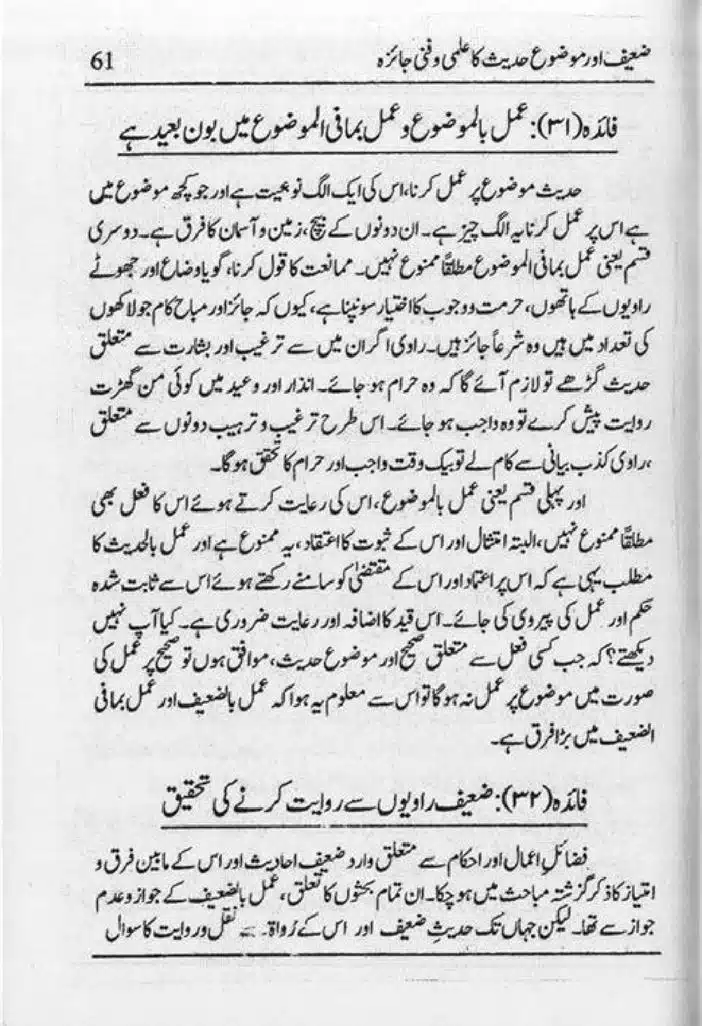 ضعیف اور موضوع حدیث کا علمی و فنی جائزہ 61
فائدہ (۳۱): عمل بالموضوع و عمل بمافی الموضوع میں بون بعید ہے
حدیث موضوع پر عمل کرنا، اس کی ایک الگ نوعیت ہے اور جو کچھ موضوع میں
ہے اس پر عمل کرنا یہ الگ چیز ہے۔ ان دونوں کے بیچ، زمین و آسمان کا فرق ہے۔ دوسری
قسم یعنی عمل بمافی الموضوع مطلقاً ممنوع نہیں۔ ممانعت کا قول کرنا، گویا وضاع اور جھوٹے
راویوں کے ہاتھوں، حرمت و وجوب کا اختیار سونپنا ہے، کیوں کہ جائز اور مباح کام جو لاکھوں
کی تعداد میں ہیں وہ شرعاً جائز ہیں۔ راوی اگر ان میں سے ترغیب اور بشارت سے متعلق
حدیث گڑھے تو لازم آئے گا کہ وہ حرام ہو جائے۔ انذار اور وعید میں کوئی من گھڑت
روایت پیش کرے تو وہ واجب ہو جائے۔ اس طرح ترغیب و ترہیب دونوں سے متعلق
،راوی کذب بیانی سے کام لے تو بیک وقت واجب اور حرام کا تحقق ہوگا۔
اور پہلی قسم یعنی عمل بالموضوع، اس کی رعایت کرتے ہوئے اس کا فعل بھی
مطلقاً ممنوع نہیں، البتہ امتثال اور اس کے ثبوت کا اعتقاد، یہ ممنوع ہے اور عمل بالحدیث کا
مطلب یہی ہے کہ اس پر اعتماد اور اس کے مقتضیٰ کو سامنے رکھتے ہوئے اس سے ثابت شدہ
حکم اور عمل کی پیروی کی جائے۔ اس قید کا اضافہ اور رعایت ضروری ہے۔ کیا آپ نہیں
دیکھتے؟ کہ جب کسی فعل سے متعلق صحیح اور موضوع حدیث، موافق ہوں تو صحیح پر عمل کی
صورت میں موضوع پر عمل نہ ہوگا تو اس سے معلوم یہ ہوا کہ عمل بالضعیف اور عمل بمافی
الضعیف میں بڑا فرق ہے۔
فائدہ (۳۲): ضعیف راویوں سے روایت کرنے کی تحقیق
فضائلِ اعمال اور احکام سے متعلق وارد ضعیف احادیث اور اس کے مابین فرق و
امتیاز کا ذکر گزشتہ مباحث میں ہو چکا۔ ان تمام بحثوں کا تعلق، عمل بالضعیف کے جواز و عدم
جواز سے تھا۔ لیکن جہاں تک حدیثِ ضعیف اور اس کے رُواۃ۔ سے نقل و روایت کا سوال